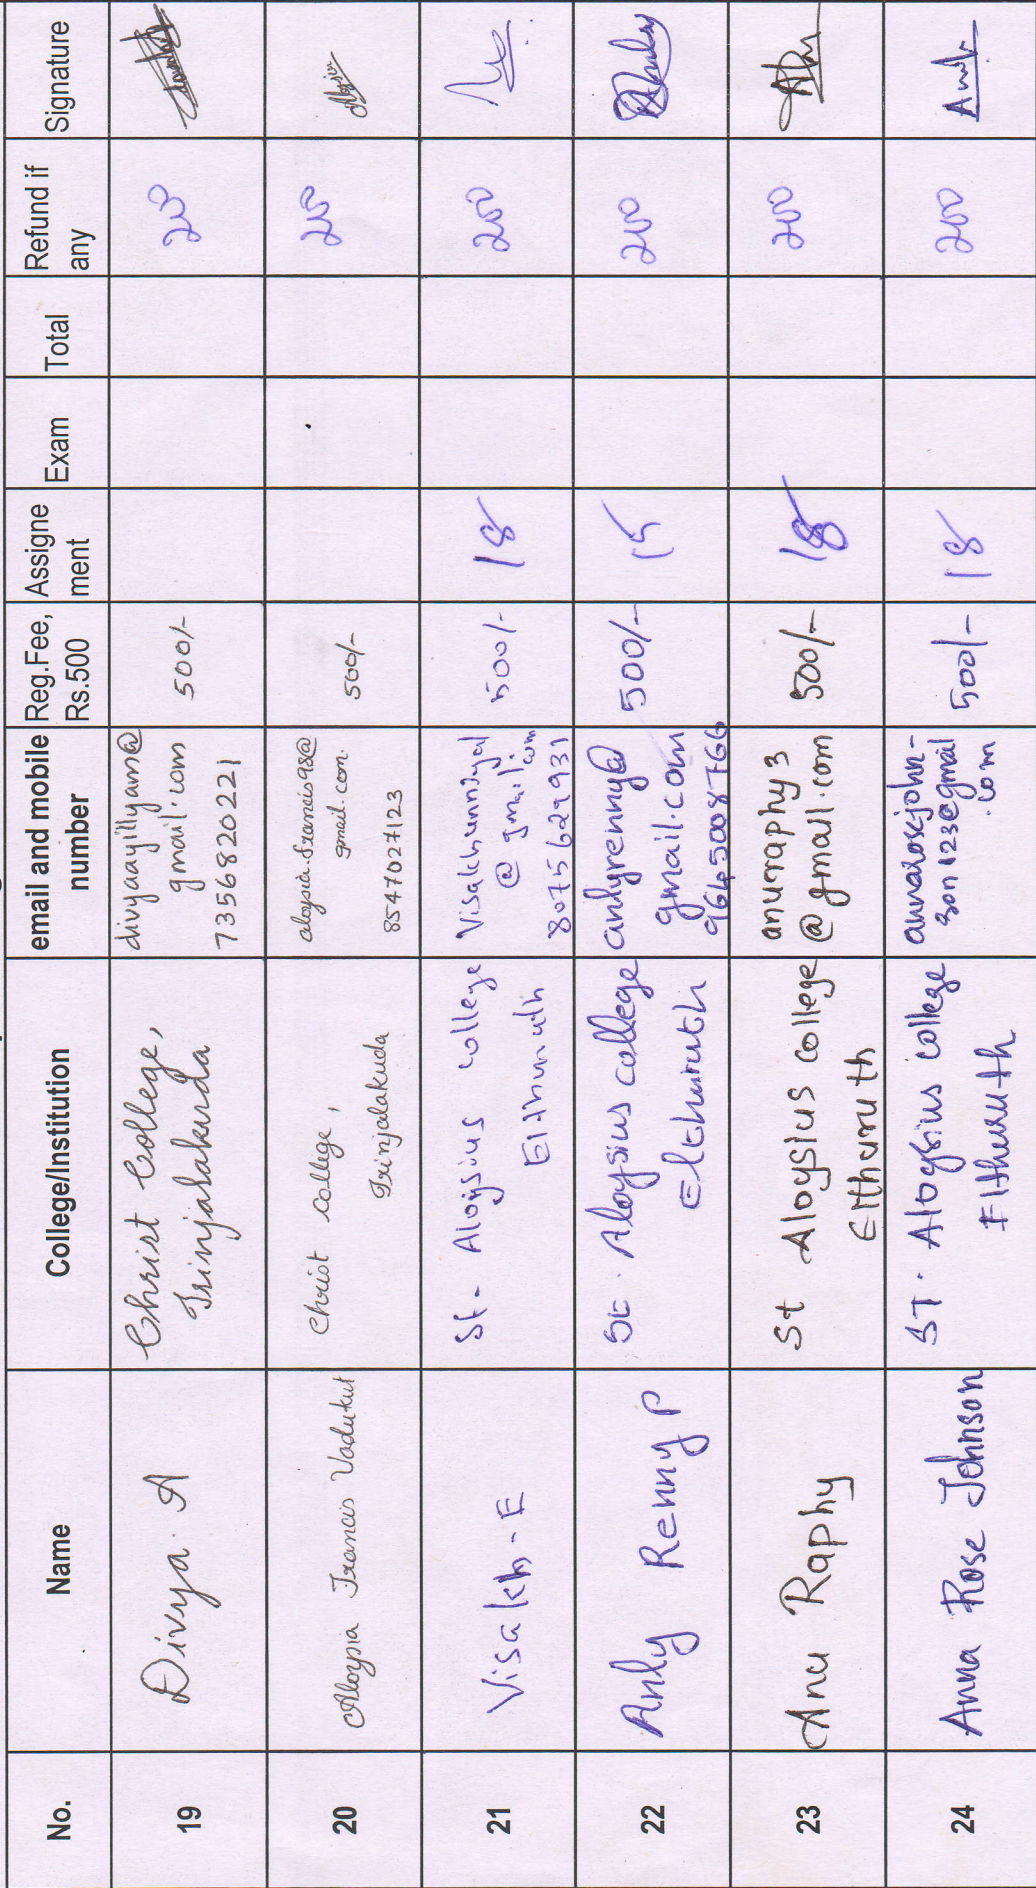 No. Name College/Institution email and mobile number Reg.Fee, Rs.500 Assigne ment Exam Total Refund if any Signature
19 Divya A Christ College, 500/- 200
Irinjalakuda
divyaayillyam@
gmail.com
7356820221
20 Aloysia Francis Vadukut Christ College, 500/- 200
Irinjalakuda
aloysia.francis98@
gmail.com.
8547027123
21 Visakh-E St- Aloysius college 500/- 18 200
Elthuruth
@ gmail.com
8075629931
22 Anly Renny P St. Aloysius college 500/- 15 200
Elthuruth
anlyrenny@
gmail.com
9645008766
23 Anu Raphy St Aloysius college 500/- 18 200
Elthuruth
anuraphy3
@gmail.com
24 Anna Rose Johnson ST. Aloysius college 500/- 18 200
Elthuruth
annarosejohn-
son123@gmail
.com